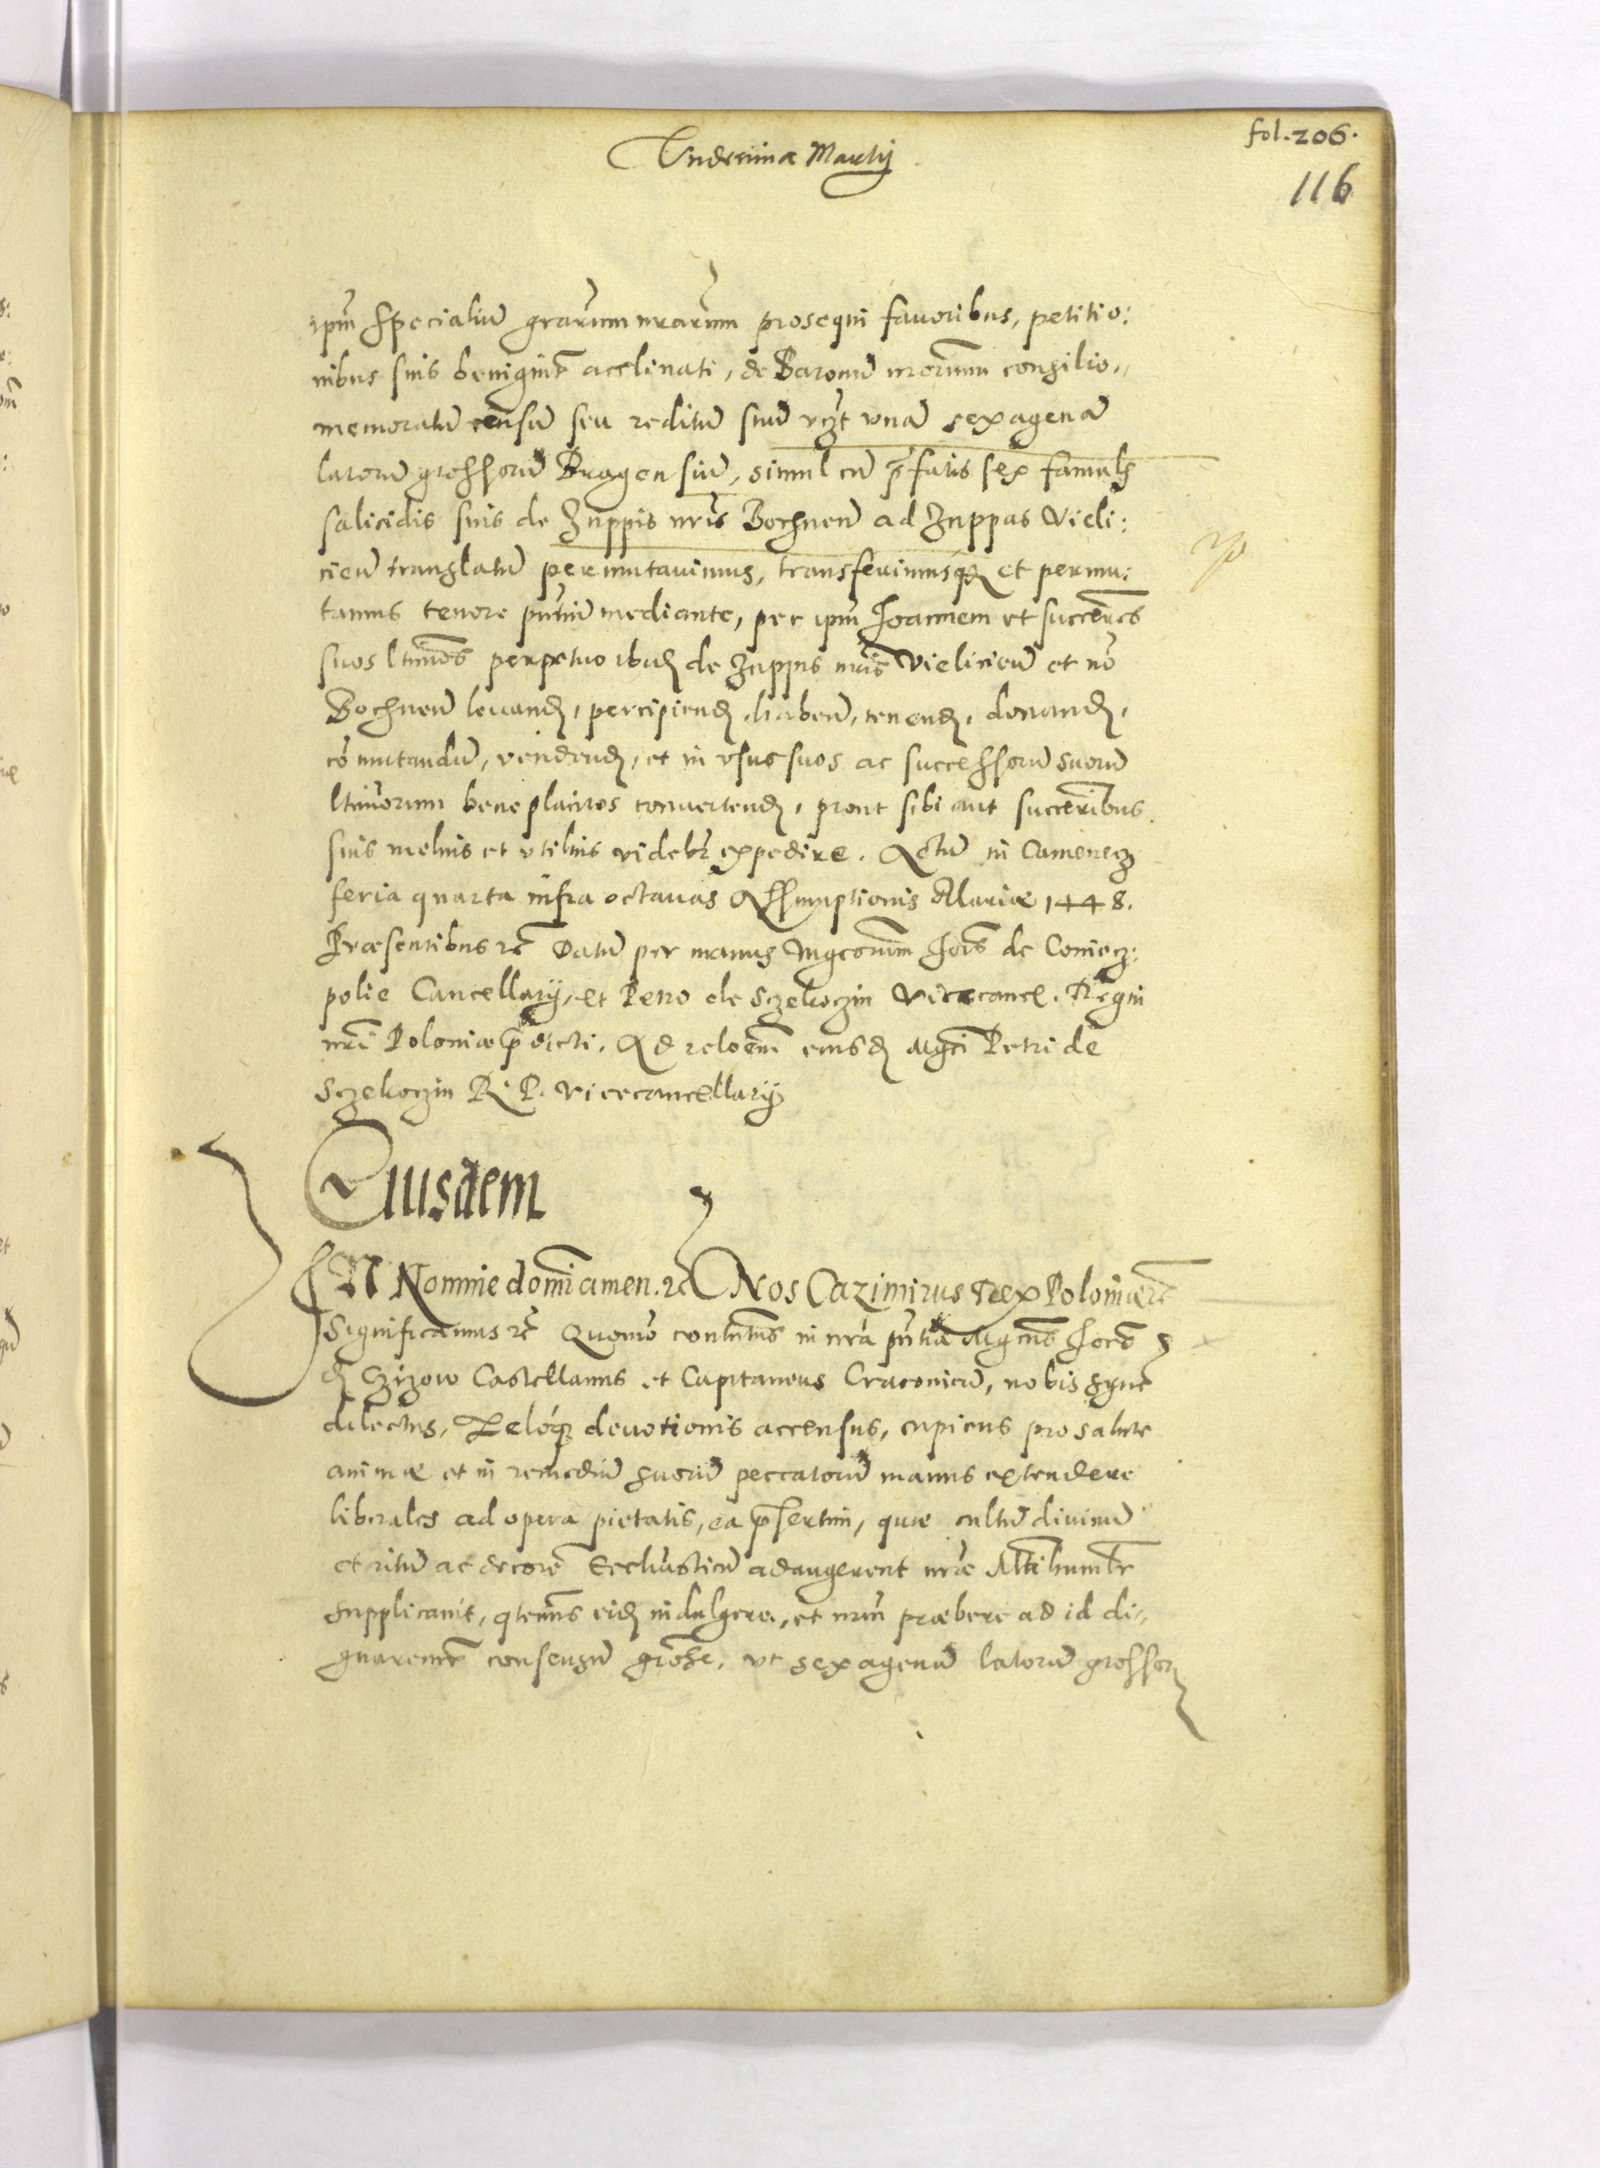 fol. 206.
Undecima Martij
116
ipm̃ specialiũ grarum nrarum prosequi fauoribus, petitio:
nibus suis benignitr̃ acclinati, de Baronũ nrorum consilio,,
memoratũ censũ seu reditũ suũ vĩzt vnã sexagenã
latorũ grossorũ Pragensiũ, simul cũ p̃fatis sex famulis
salicidis suis de Zuppis nris̃ Bochnen̄ ad Zuppas Vieli:
cien̄ translatũ permutauimus, transferimusq̃ et permu:
tamus tenore pñtium mediante, per ipm̃ Joannem et succes̃res
suos ltimõs perpetuo de Zuppis nris̃ Vielicien̄ et nõ
Bochnen̄ leuand, percipiend, haben̄, tenend, donand,
cõmutandũ, vendend, et in vsus suos ac successorũ suorũ
ltimorum beneplacitos conuertend, prout sibi aut succes̃ribus
suis melius et vtilius videbr̃ expedire. Actũ in Camenecz
feria quarta infra octauas Assumptionis Mariæ 1448.
Præsentibus rc̃ Datũ per manus Mgcorum Jois̃ de Coniecz:
polie Cancellarij, et Petro de Sczekoczin Vicecancel. Regni
nri Poloniæ p̃dicti. Ad reloem̃ eiusd Mgci Petri de
Sczekoczin R. P. Vicecancellarij
Eiusdem
IN Nomine domĩ amen. rc̃ Nos Cazimirus Rex Poloniæ rc̃
Significamus rc̃ Quomõ constitutus in nrã pñtia Mgcus̃ Joes̃
d Czizow Castellanus et Capitaneus Cracouien̄, nobis sync̃
dilectus, Zeloq̃ deuotionis accensus, cupiens pro salute
animæ et in remediũ suorũ peccatorũ manus extendere
liberales ad opera pietatis, ea p̃sertim, quæ cultũ diuinũ
et ritũ ac decorẽ Ecclĩasticũ adaugerent nræ Mtĩ humilr̃
supplicauit, qtenus̃ eid indulgere, et nrum̃ præbere ad id di,,
gnaremur̃ consensũ grose, vt sexagenã latorũ grossor